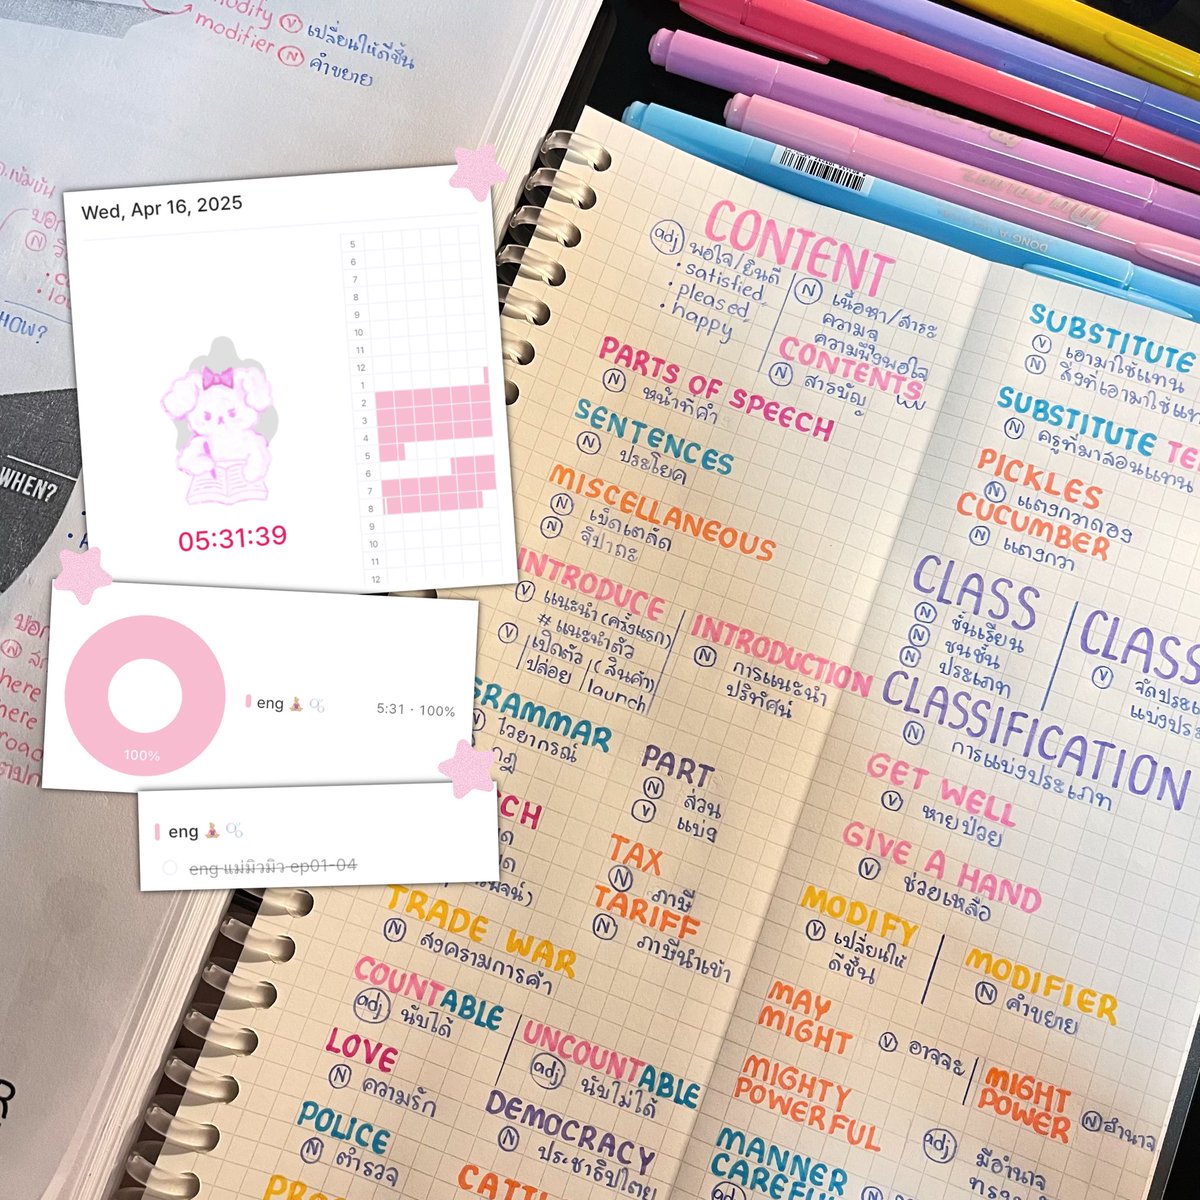 modify Ⓥ เปลี่ยนให้ดีขึ้น
modifier Ⓝ คำขยาย
HOW?
WHEN?
Wed, Apr 16, 2025
5
6
7
8
9
10
11
12
1
2
3
4
5
6
7
8
9
10
11
12
05:31:39
100%
eng
5:31 · 100%
eng
eng แม่มิวมิว ep01-04
DONG-A
CONTENT
adj พอใจ/ยินดี
• satisfied
• pleased
• happy
Ⓝ เนื้อหา/สาระ
ความจุ
ความพึงพอใจ
CONTENTS
Ⓝ สารบัญ
PARTS OF SPEECH
Ⓝ หน้าที่คำ
SENTENCES
Ⓝ ประโยค
MISCELLANEOUS
Ⓝ เบ็ดเตล็ด
Ⓝ จิปาถะ
INTRODUCE
Ⓥ แนะนำ(ครั้งแรก)
# แนะนำตัว
Ⓥ เปิดตัว/(สินค้า)
ปล่อย/launch
INTRODUCTION
Ⓝ การแนะนำ
ปริทัศน์
GRAMMAR
Ⓝ ไวยากรณ์
กฎ
PART
Ⓝ ส่วน
Ⓥ แบ่ง
TAX
Ⓝ ภาษี
TARIFF
Ⓝ ภาษีนำเข้า
TRADE WAR
Ⓝ สงครามการค้า
COUNTABLE
adj นับได้
UNCOUNTABLE
adj นับไม่ได้
LOVE
Ⓝ ความรัก
DEMOCRACY
Ⓝ ประชาธิปไตย
POLICE
Ⓝ ตำรวจ
SUBSTITUTE
Ⓥ เอามาใช้แทน
Ⓝ สิ่งที่เอามาใช้แทน
SUBSTITUTE TE
Ⓝ ครูที่มาสอนแทน
PICKLES
Ⓝ แตงกวาดอง
CUCUMBER
Ⓝ แตงกวา
CLASS
Ⓝ ชั้นเรียน
Ⓝ ชนชั้น
Ⓝ ประเภท
CLASS
Ⓥ จัดประเ
แบ่งประ
CLASSIFICATION
Ⓝ การแบ่งประเภท
GET WELL
Ⓥ หายป่วย
GIVE A HAND
Ⓥ ช่วยเหลือ
MODIFY
Ⓥ เปลี่ยนให้
ดีขึ้น
MODIFIER
Ⓝ คำขยาย
MAY
MIGHT
Ⓥ อาจจะ
MIGHT
POWER
Ⓝ อำนาจ
MIGHTY
POWERFUL
adj มีอำนาจ
MANNER
CAREFUL